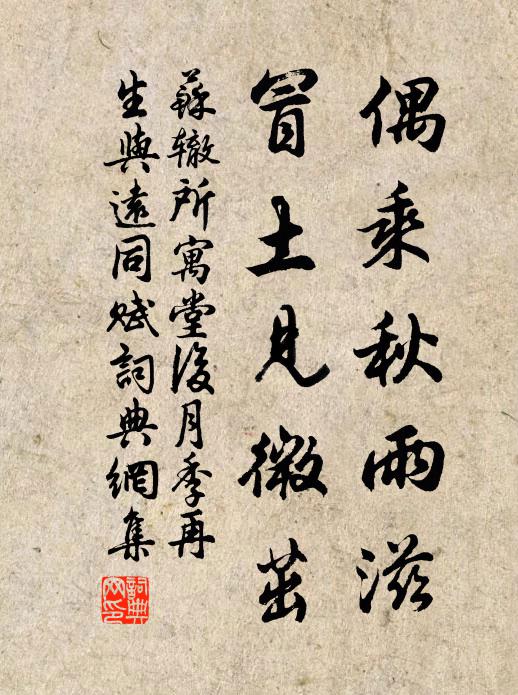 偶乘秋雨滋
冒土見微茁
蘇辙所寓堂後月季再
生與遠同賦詞典網集
詞典網印